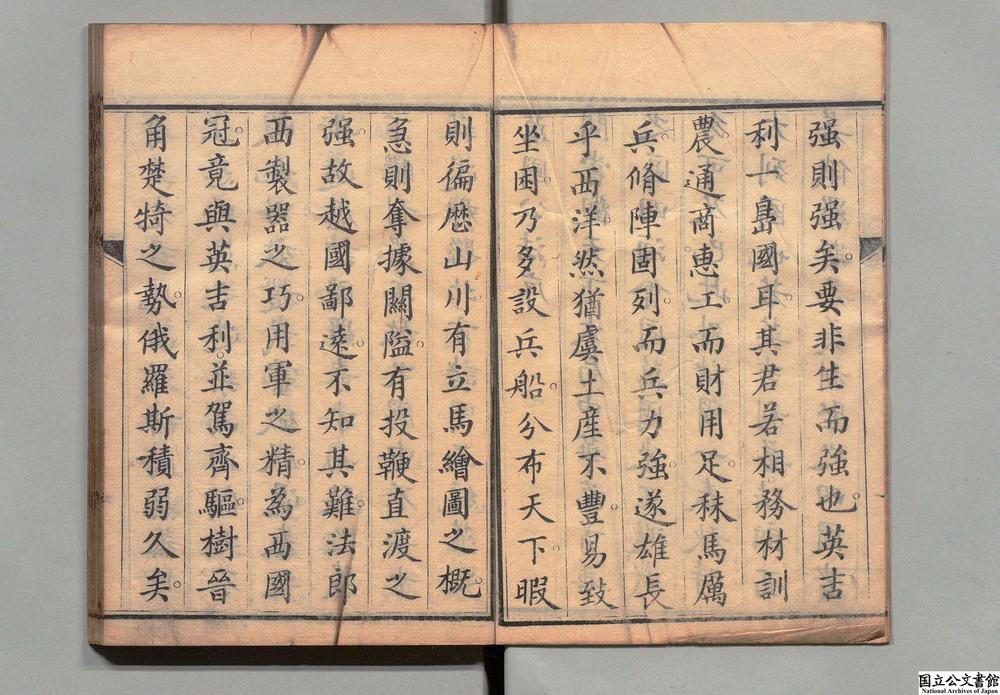 强則强矣。要非生而強也。英吉
利一島國耳。其君若相。務材訓
農。通商惠工而財用足。秣馬厲
兵。脩陣固列。而兵力強。遂雄長
乎西洋。然猶虞土產不豐。易致
坐困。乃多設兵船。分布天下。暇
則徧歷山川。有立馬繪圖之概。
急則奪據關隘。有投鞭直渡之
强。故越國鄙遠。不知其難。法郎
西製器之巧。用軍之精。為西國
冠。竟與英吉利。並駕齊驅。樹晉
角楚犄之勢。俄羅斯積弱久矣。
国立公文書館
National Archives of Japan